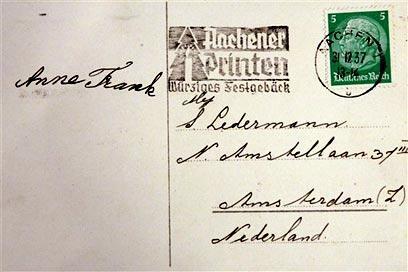 Aachener
Printen
Würziges Festgebäck
5 5
Deutsches Reich
AACHEN
Anne Frank
S Ledermann
N. Amstellaan 37 III
Amsterdam (Z)
Nederland.